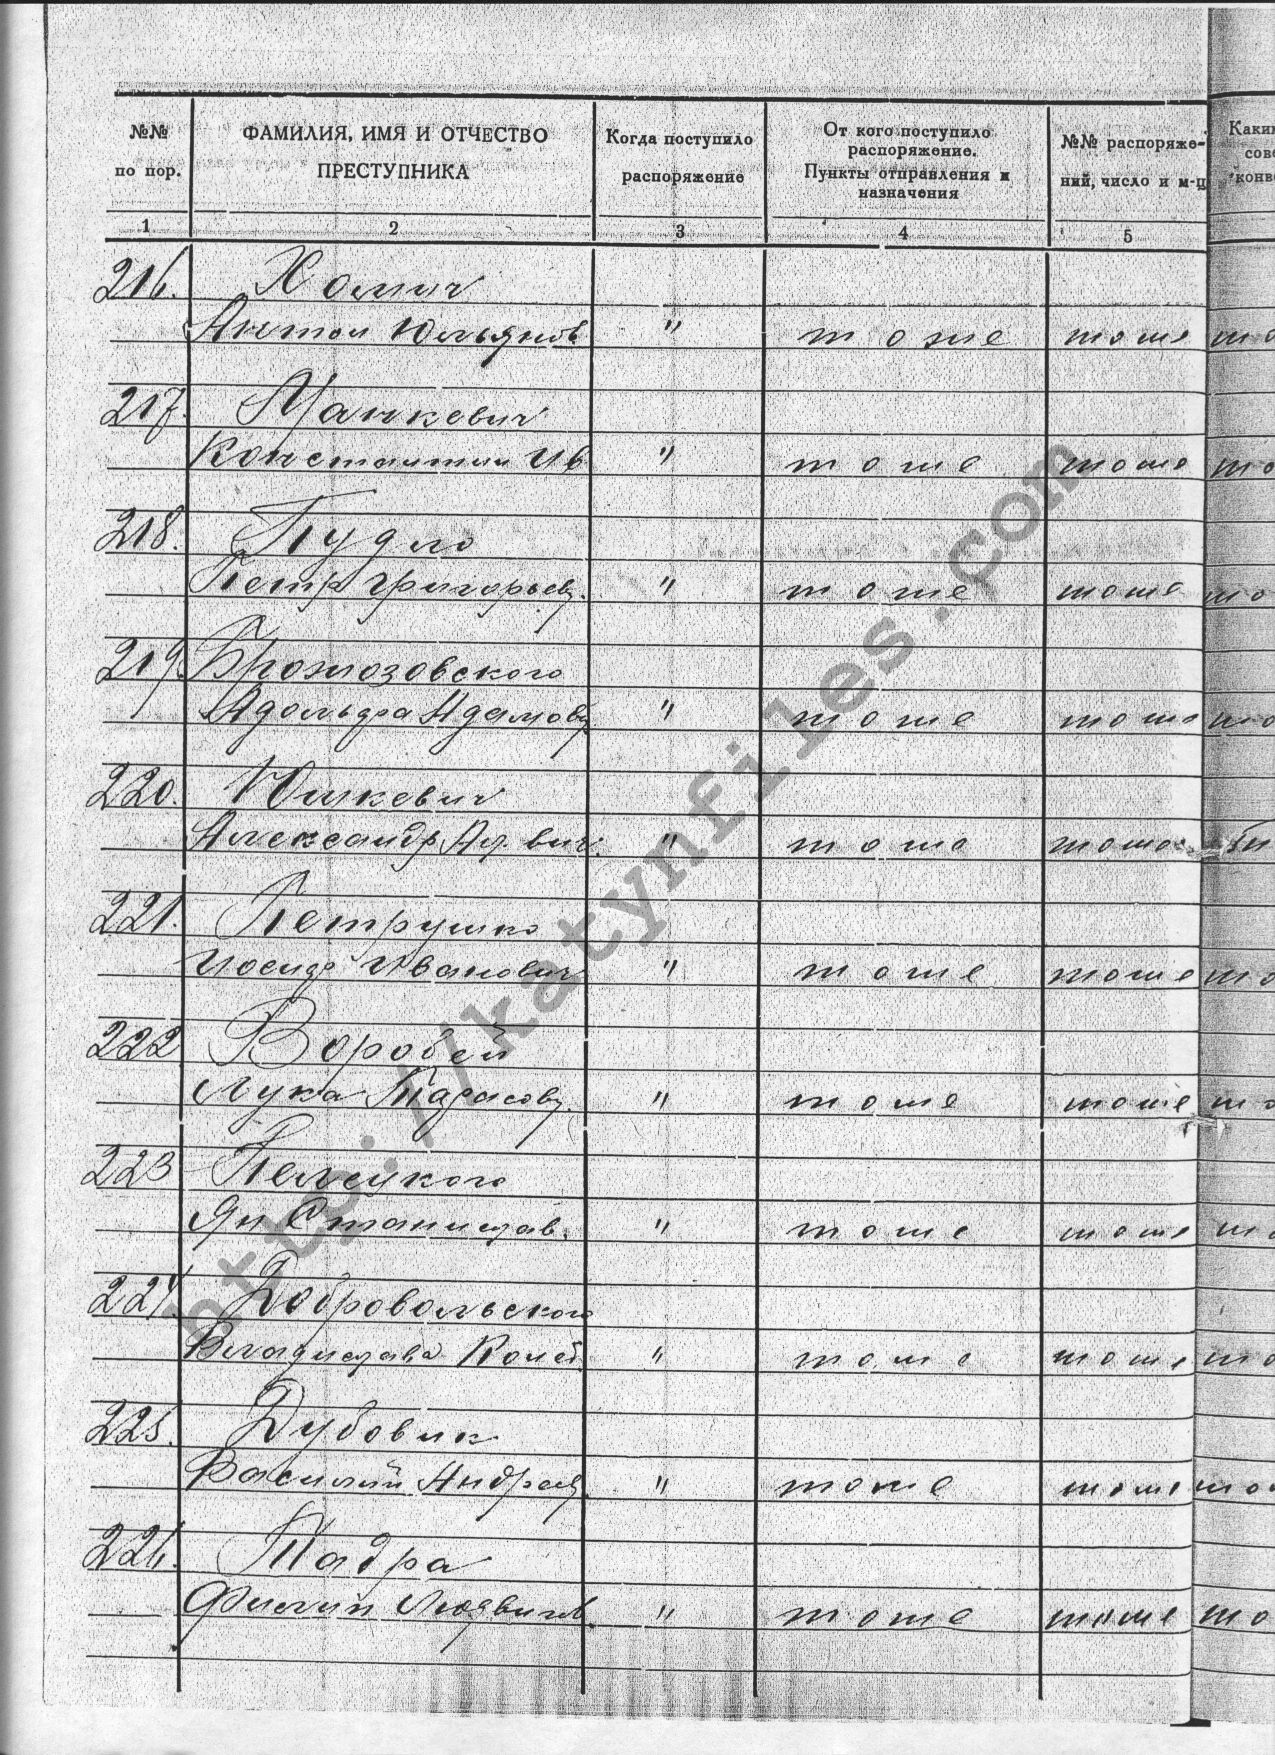 №№ по пор.
ФАМИЛИЯ, ИМЯ И ОТЧЕСТВО ПРЕСТУПНИКА
Когда поступило распоряжение
От кого поступило распоряжение. Пункты отправления и назначения
№№ распоряже-ний, число и м-ц
Каки
сов
конв
1 2 3 4 5
216. Хомич
Антон Юльянов " тоже тоже то
217. Манкевич
Константин Ив " тоже тоже то
218. Пудло
Петр Григорьев. " тоже тоже то
219. Брожозовского
Адольфа Адамов " тоже тоже то
220. Юшкевич
Александр Ал. вич. " тоже тоже
221. Петрушко
Иосиф Иванович " тоже тоже то
222 Воробей
Лука Тарасов. " тоже тоже то
223 Пельцкого
Ян Станислав. " тоже тоже то
224. Добровольского
Владислава " тоже тоже то
225. Дубовик
Василий Андреев. " тоже тоже то
226. Тадра
Филип Людвигов. " тоже тоже то
http://katynfiles.com